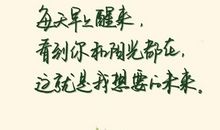 每天早上醒来，
看到你和阳光都在，
这就是我想要的未来。